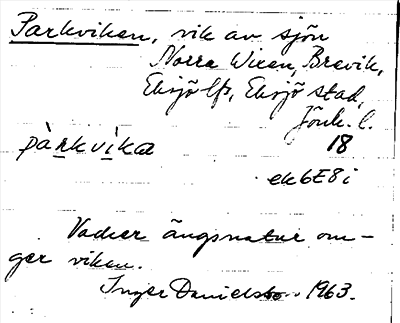 Parkviken, vik av sjön
Norra Wixen, Brevik,
Eksjö lfs, Eksjö stad,
Jönk. l.
18
pàrkvìka
ek 6E8i
Vacker ängsnatur om-
ger viken.
Inger Danielsson 1963.